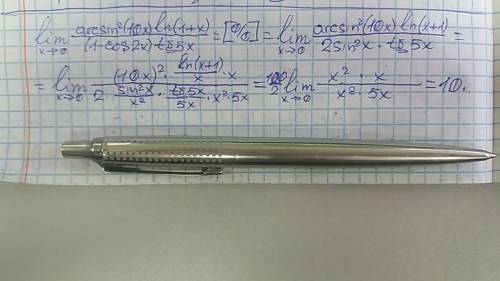 lim x→0 arcsin²(10x) ln(1+x) / (1-cos2x) tg5x = [0/0] = lim x→0 arcsin²(10x) ln(x+1) / 2sin²x · tg5x =
= lim x→0 (10x)² · ln(x+1)/x · x / 2 · sin²x/x² · tg5x/5x · x² · 5x = 100/2 lim x→0 x² · x / x² · 5x = 10.